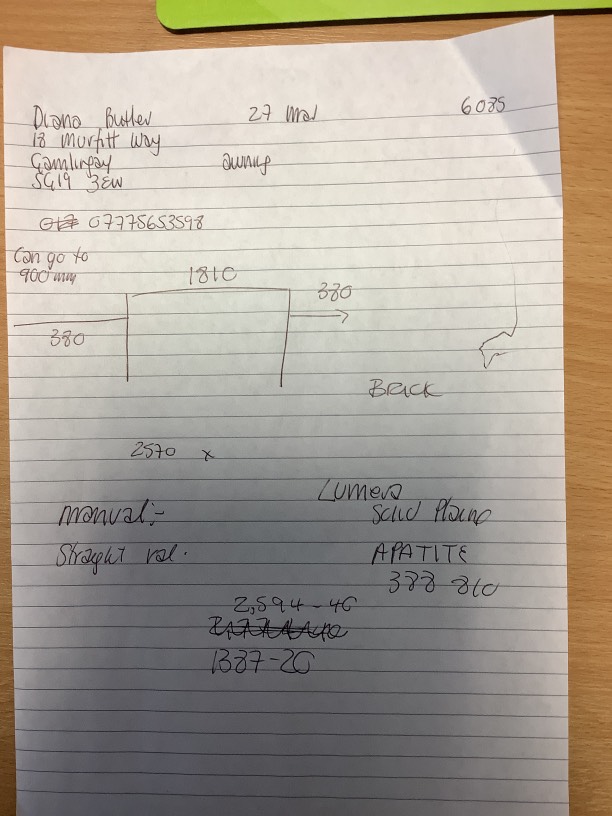 Diana Butler 27 Mar 6035
18 Murfitt Way
Gamlingay awning
SG19 3EW
07775653598
Can go to
900mm
1810
380
380
Brick
2570 x
Lumera
Manual:-
Solid Plains
Straight val.
APATITE
388 810
2,594-40
1387-20